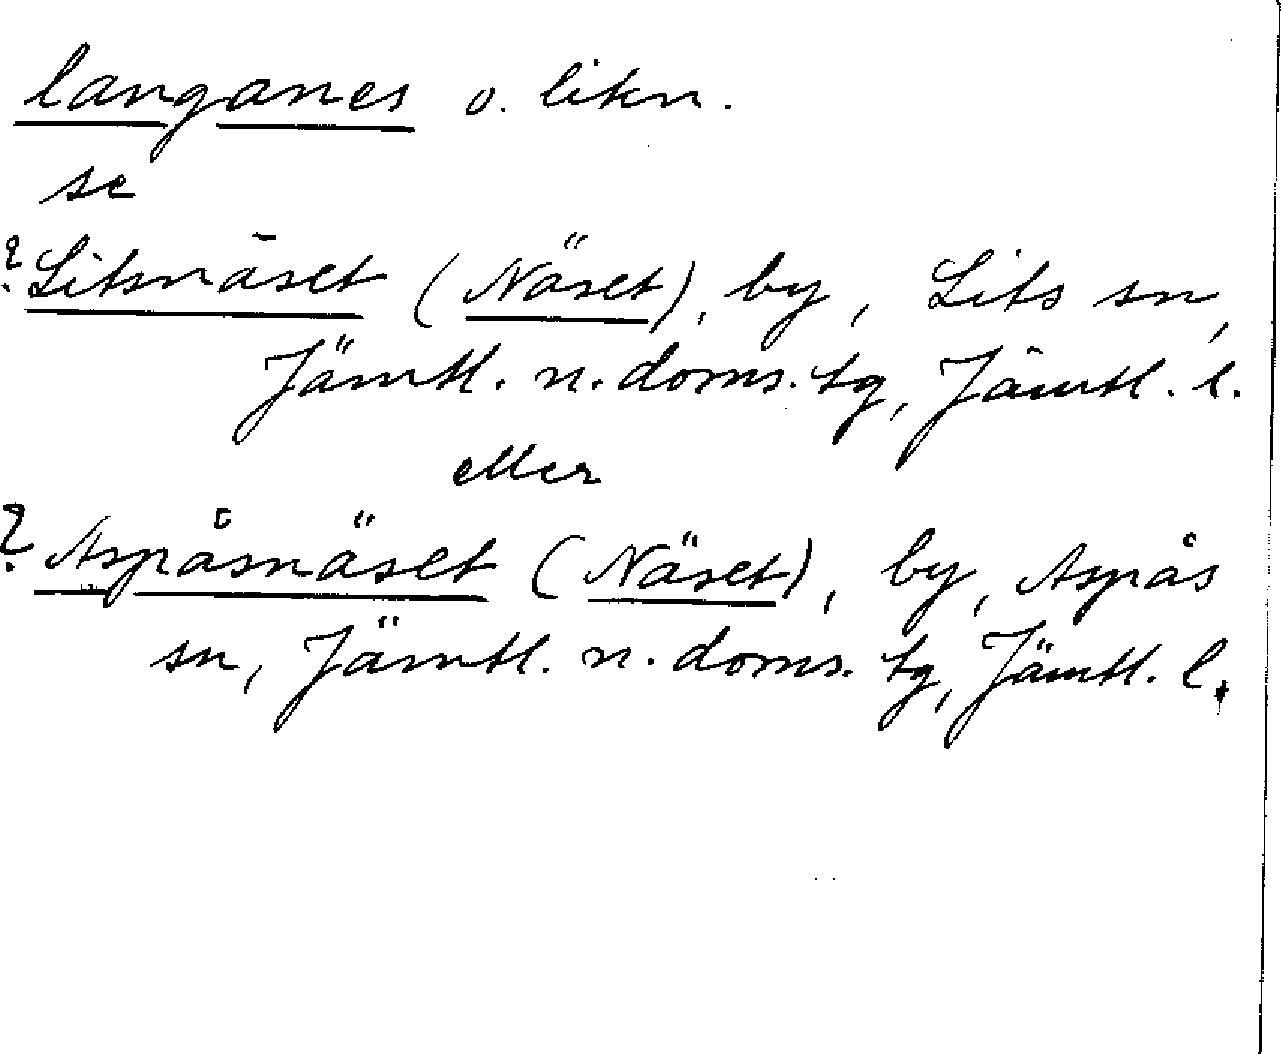 langanes o. likn.
se
? Litsnäset (Näset), by, Lits sn,
Jämtl. n. doms. tg, Jämtl. l.
eller
? Aspåsnäset (Näset), by, Aspås
sn, Jämtl. n. doms. tg, Jämtl. l.